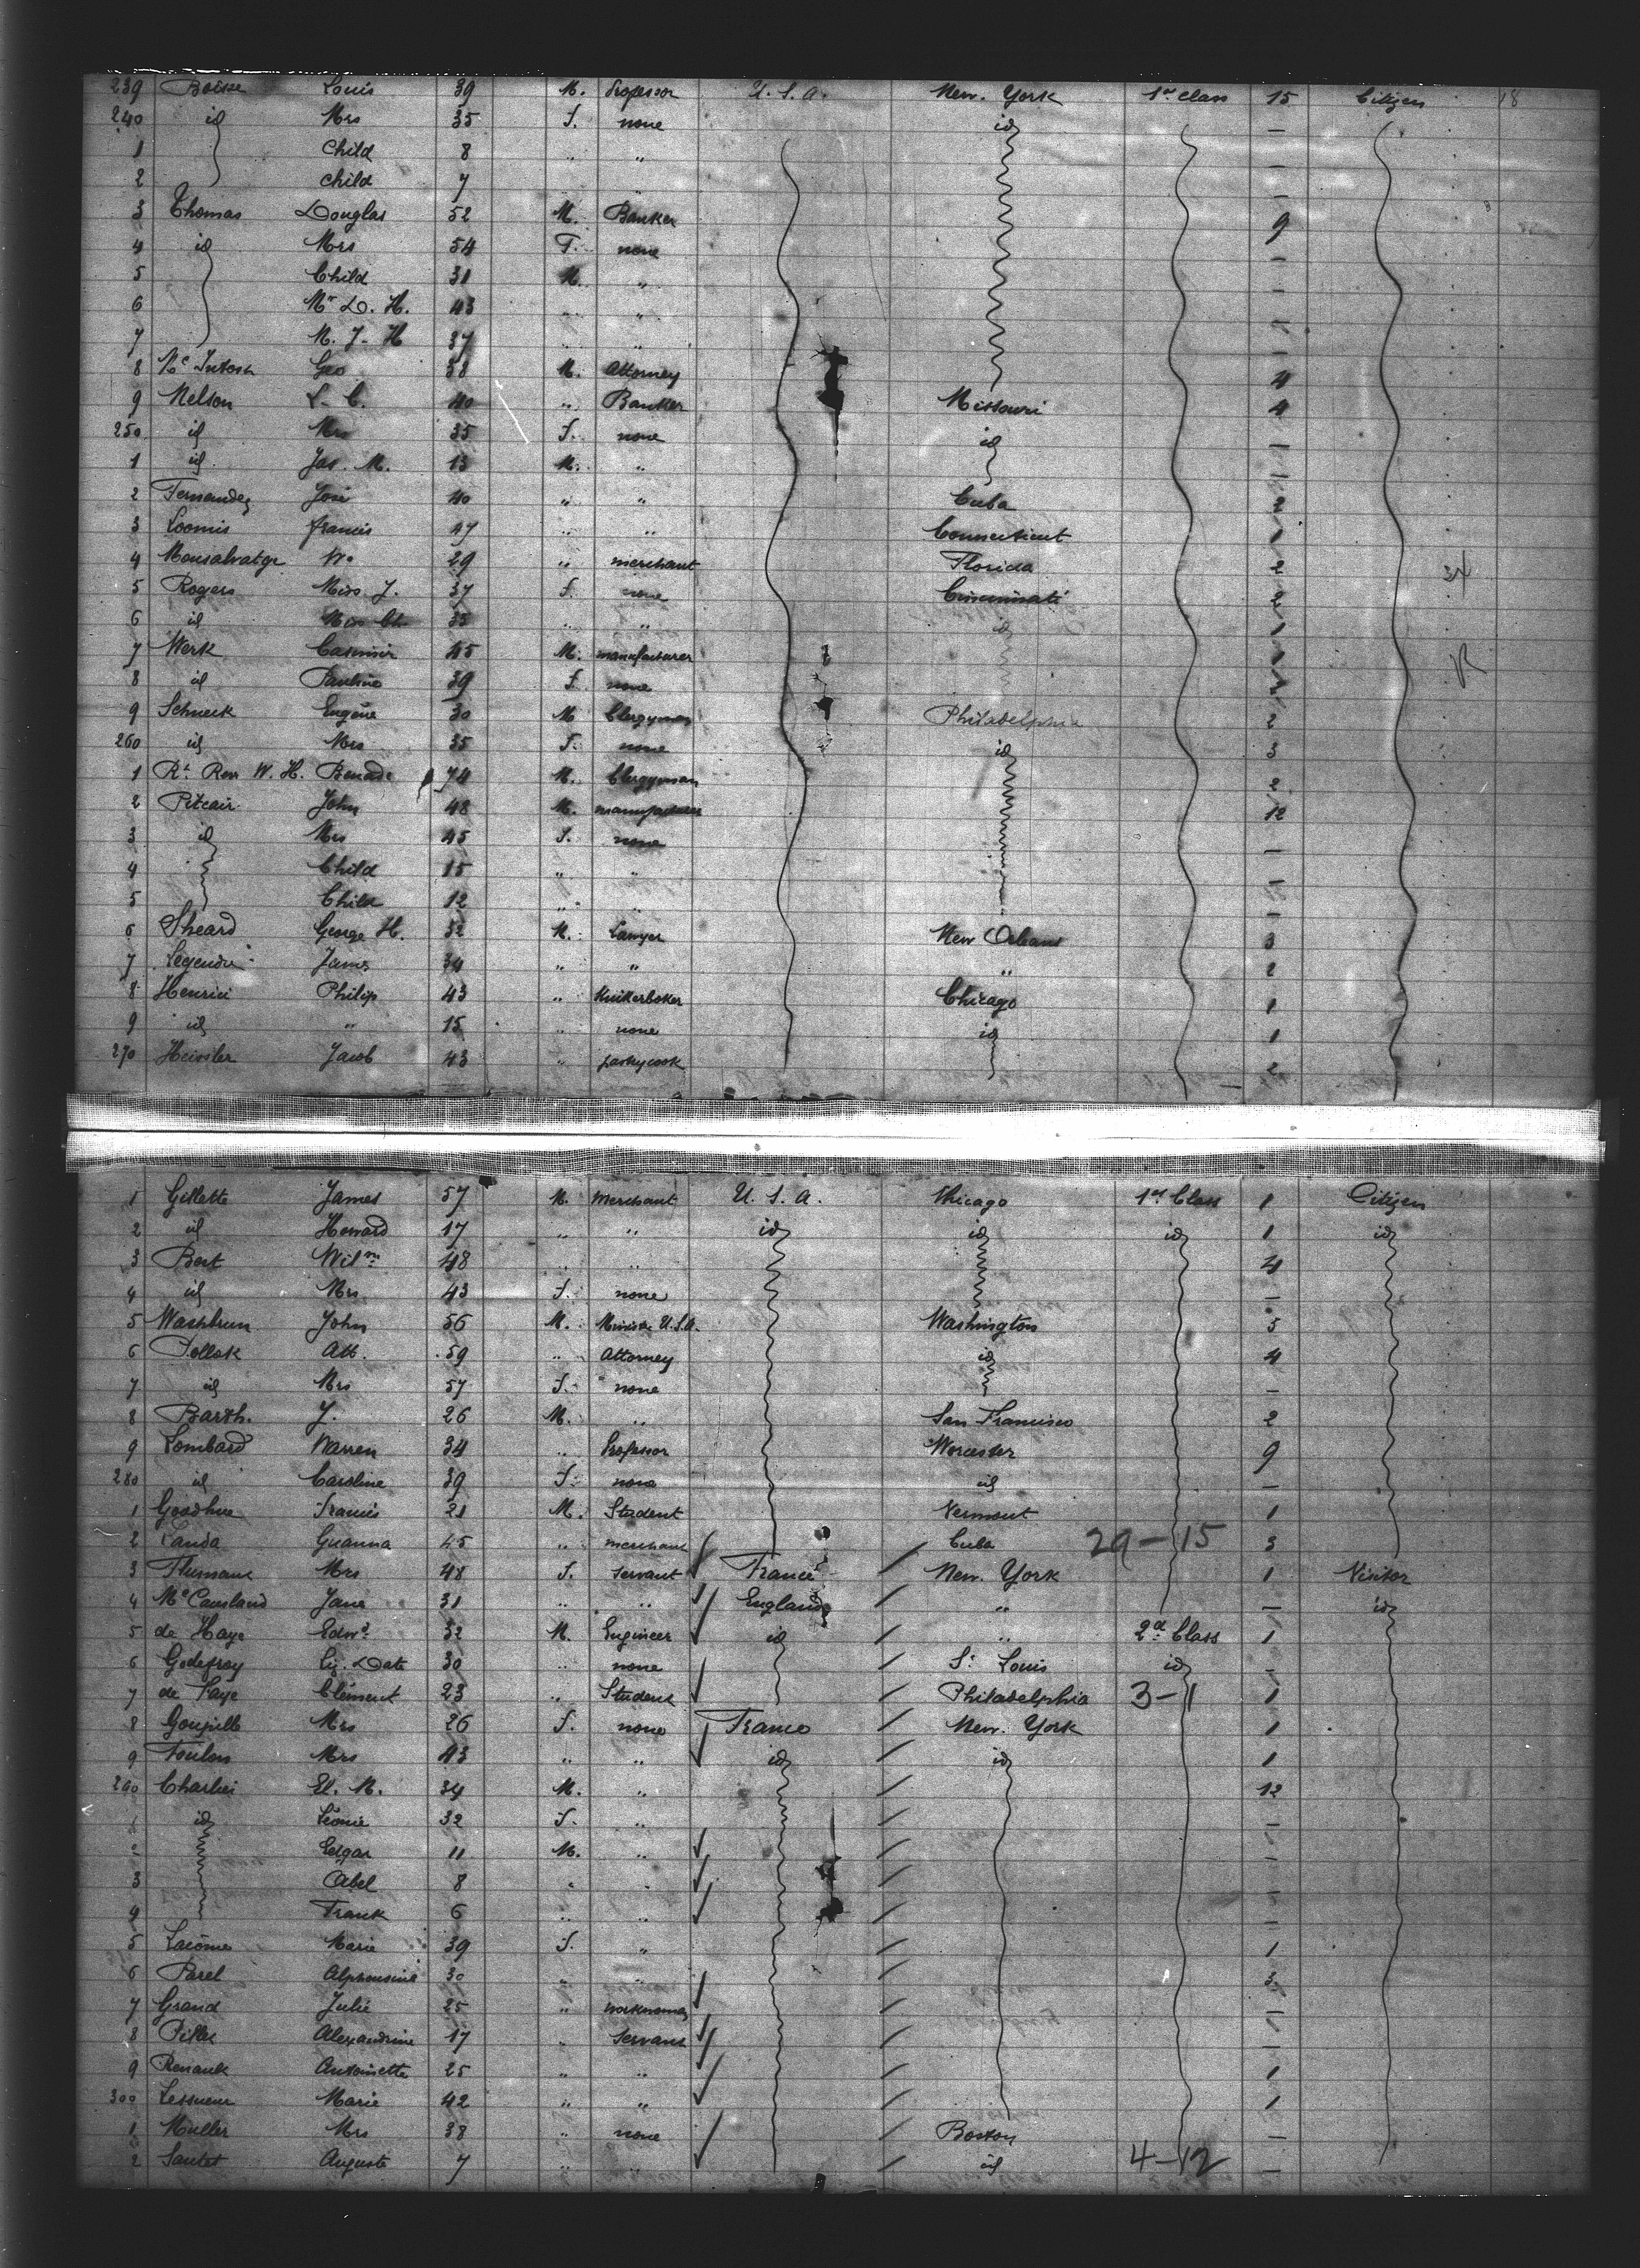 239 Boise Louis 39 M. Professor U.S.A. New. York 1st class 15 Citizen 18
240 id Mrs 35 F. none id —
1 Child 8 " " —
2 child 7 " —
3 Thomas Douglas 52 M. Banker 9
4 id Mrs 54 F. none —
5 Child 31 M. " —
6 Mr D. H. 43 " " —
7 M. J. H 37 " " —
8 Mc Intosh Geo 38 M. Attorney 4
9 Nelson L. C. 40 " Banker Missouri 4
250 id Mrs 35 F. none id —
1 id Jas. M. 13 M. " —
2 Fernandez José 40 " " Cuba 2
3 Loomis francis 47 " " Connecticut 1
4 Monsalvatge Wm 29 " merchant Florida 2
5 Rogers Miss J. 37 F. none Cincinnati 2
6 id Miss Ch. 33 " " id 1
7 Werk Casimir 45 M. manufacturer 1
8 id Pauline 39 F. none
9 Schneck Eugène 30 M Clergyman Philadelphia 2
260 id Mrs 35 F. none id 3
1 Rt Rev W. H. Benade 74 M. Clergyman 2
2 Pitcair John 48 M. manufacturer 12
3 id Mrs 45 F. none —
4 Child 15 " " —
5 Child 12 " " —
6 Sheard George H. 32 M. Lawyer New Orleans 3
7 Legendre James 34 " " " 2
8 Henrici Philip 43 " Knikerboker Chicago 1
9 id " 15 " none id 1
270 Heissler Jacob 43 " pastrycook 2
1 Gillette James 57 M. Merchant U.S.A. Chicago 1st Class 1 Citizen
2 id Howard 17 " " id id id 1 id
3 Best Wilm 48 " " 4
4 id Mrs 43 F. none —
5 Washburn John 56 M. Minister U.S.A. Washington 5
6 Pollok Att. 59 " Attorney id 4
7 id Mrs 57 F. none —
8 Barth. J. 26 M. " San Francisco 2
9 Lombard Warren 34 " Professor Worcester 9
280 id Caroline 39 F. none id —
1 Goodhue Francis 21 M. Student Vermont 1
2 Canda Guanna 45 " merchant Cuba 29-15 3
3 Flumans Mrs 48 F. servant France New. York 1 Visitor
4 Mc Causland Jane 31 " " England " — id
5 de Haye Edwd 32 M. Engineer id " 2d Class 1
6 Godefroy 30 " none St Louis id —
7 de Faye Clément 23 " Student Philadelphia 3-1 1
8 Goupille Mrs 26 F. none France New. York 1
9 Toulon Mrs 43 " " id id 1
290 Charlier El. M. 34 M. " 12
1 id Léonie 32 F. " —
2 Edgar 11 M. " —
3 Abel 8 " " —
4 Frank 6 " " —
5 Lacome Marie 39 F. " 1
6 Parel Alphonsine 30 " " 3
7 Grand Julie 25 " workwoman —
8 Alexandrine 17 " Servant —
9 Renault Antoinette 25 " " 1
300 Lessueur Marie 42 " " 1
1 Muller Mrs 38 " none Boston —
2 Santet Auguste 7 " " id 4-12 —